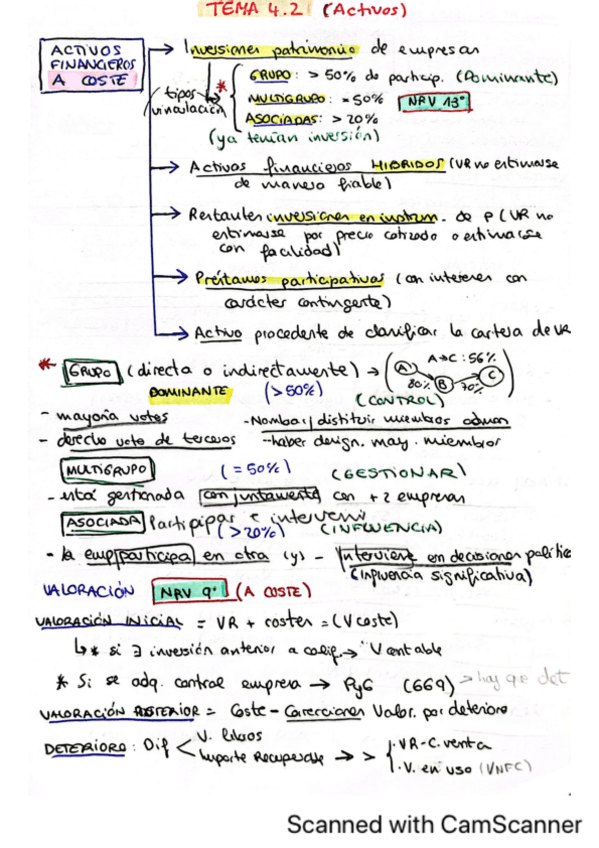 TEMA 4.2 (Activos)
ACTIVOS FINANCIEROS A COSTE
→ Inversiones patrimonio de empresas
tipos vinculación
* GRUPO: > 50% de particip. (Dominante)
MULTIGRUPO: = 50% NRV 13ª
ASOCIADAS: > 20%
(ya tenían inversión)
→ Activos financieros HIBRIDOS (VR no estimarse
de manera fiable)
→ Restantes inversiones en instrum. de P (VR no
estimarse por precio cotizado o estimarse
con facilidad)
→ Préstamos participativos (con intereses con
carácter contingente)
→ Activo procedente de clasificar la cartera de ve
* GRUPO (directa o indirectamente) → (A→C: 56%
A 80% B 70% C)
DOMINANTE (>50%) (CONTROL)
- mayoría votos - Nombrar/ distituir miembros admon
- derecho voto de terceros - haber design. may. miembros
MULTIGRUPO (= 50%) (GESTIONAR)
- está gestionada conjuntamente con +2 empresas
ASOCIADA Participar e intervenir
(>20%) (INFLUENCIA)
- la emp participa en otra (y) - Interviene en decisiones polític
(influencia significativa)
VALORACIÓN NRV 9ª (A COSTE)
VALORACIÓN INICIAL = VR + costes = (V coste)
↳* si ∃ inversión anterior a calif. → V contable
* Si se adq. control empresa → PyG (669) → hay que det
VALORACIÓN POSTERIOR = Coste - Correcciones Valor. por deterioro
DETERIORO: Dif < V. libros
Importe Recuperable → > { · VR - C. venta
· V. en uso (VNFC)
Scanned with CamScanner